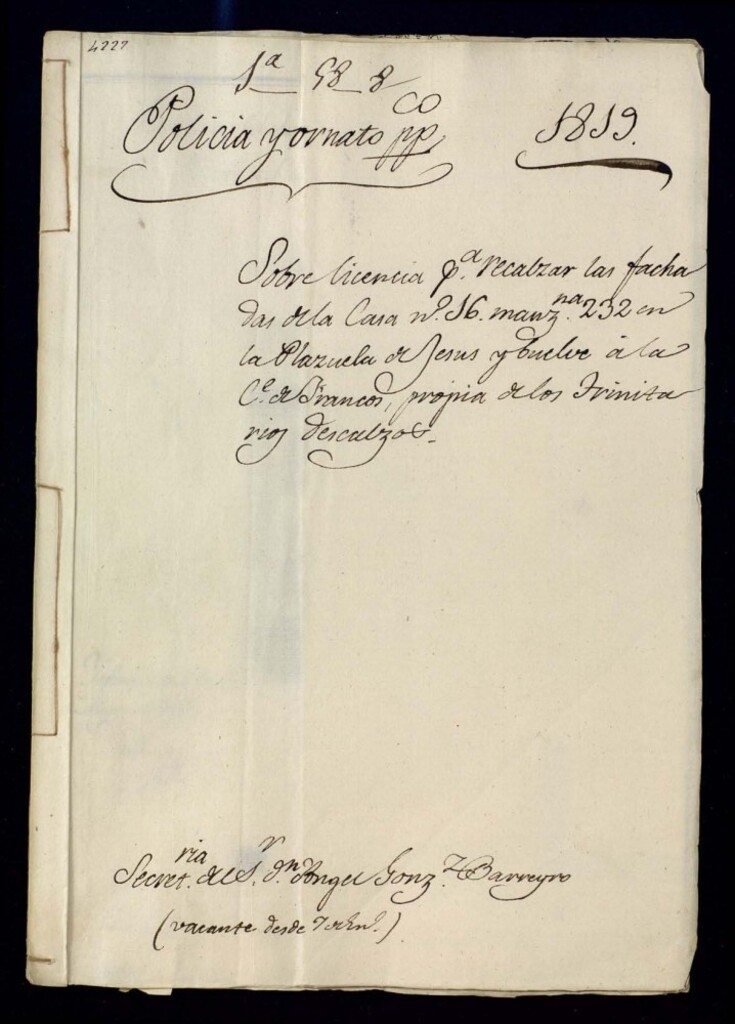 4222
1ª 58 8
Policia y ornato pp.co 1819.
Sobre licencia p.a recalzar las facha
das de la Casa n.o 16. manz.na 232 en
la Plazuela de Jesus y buelve á la
C.e de Francos, propia de los Trinita
rios descalzos.
Secret.ria del S.r d.n Angel Gonz.z Barreyro
(vacante desde 7 de En.o)